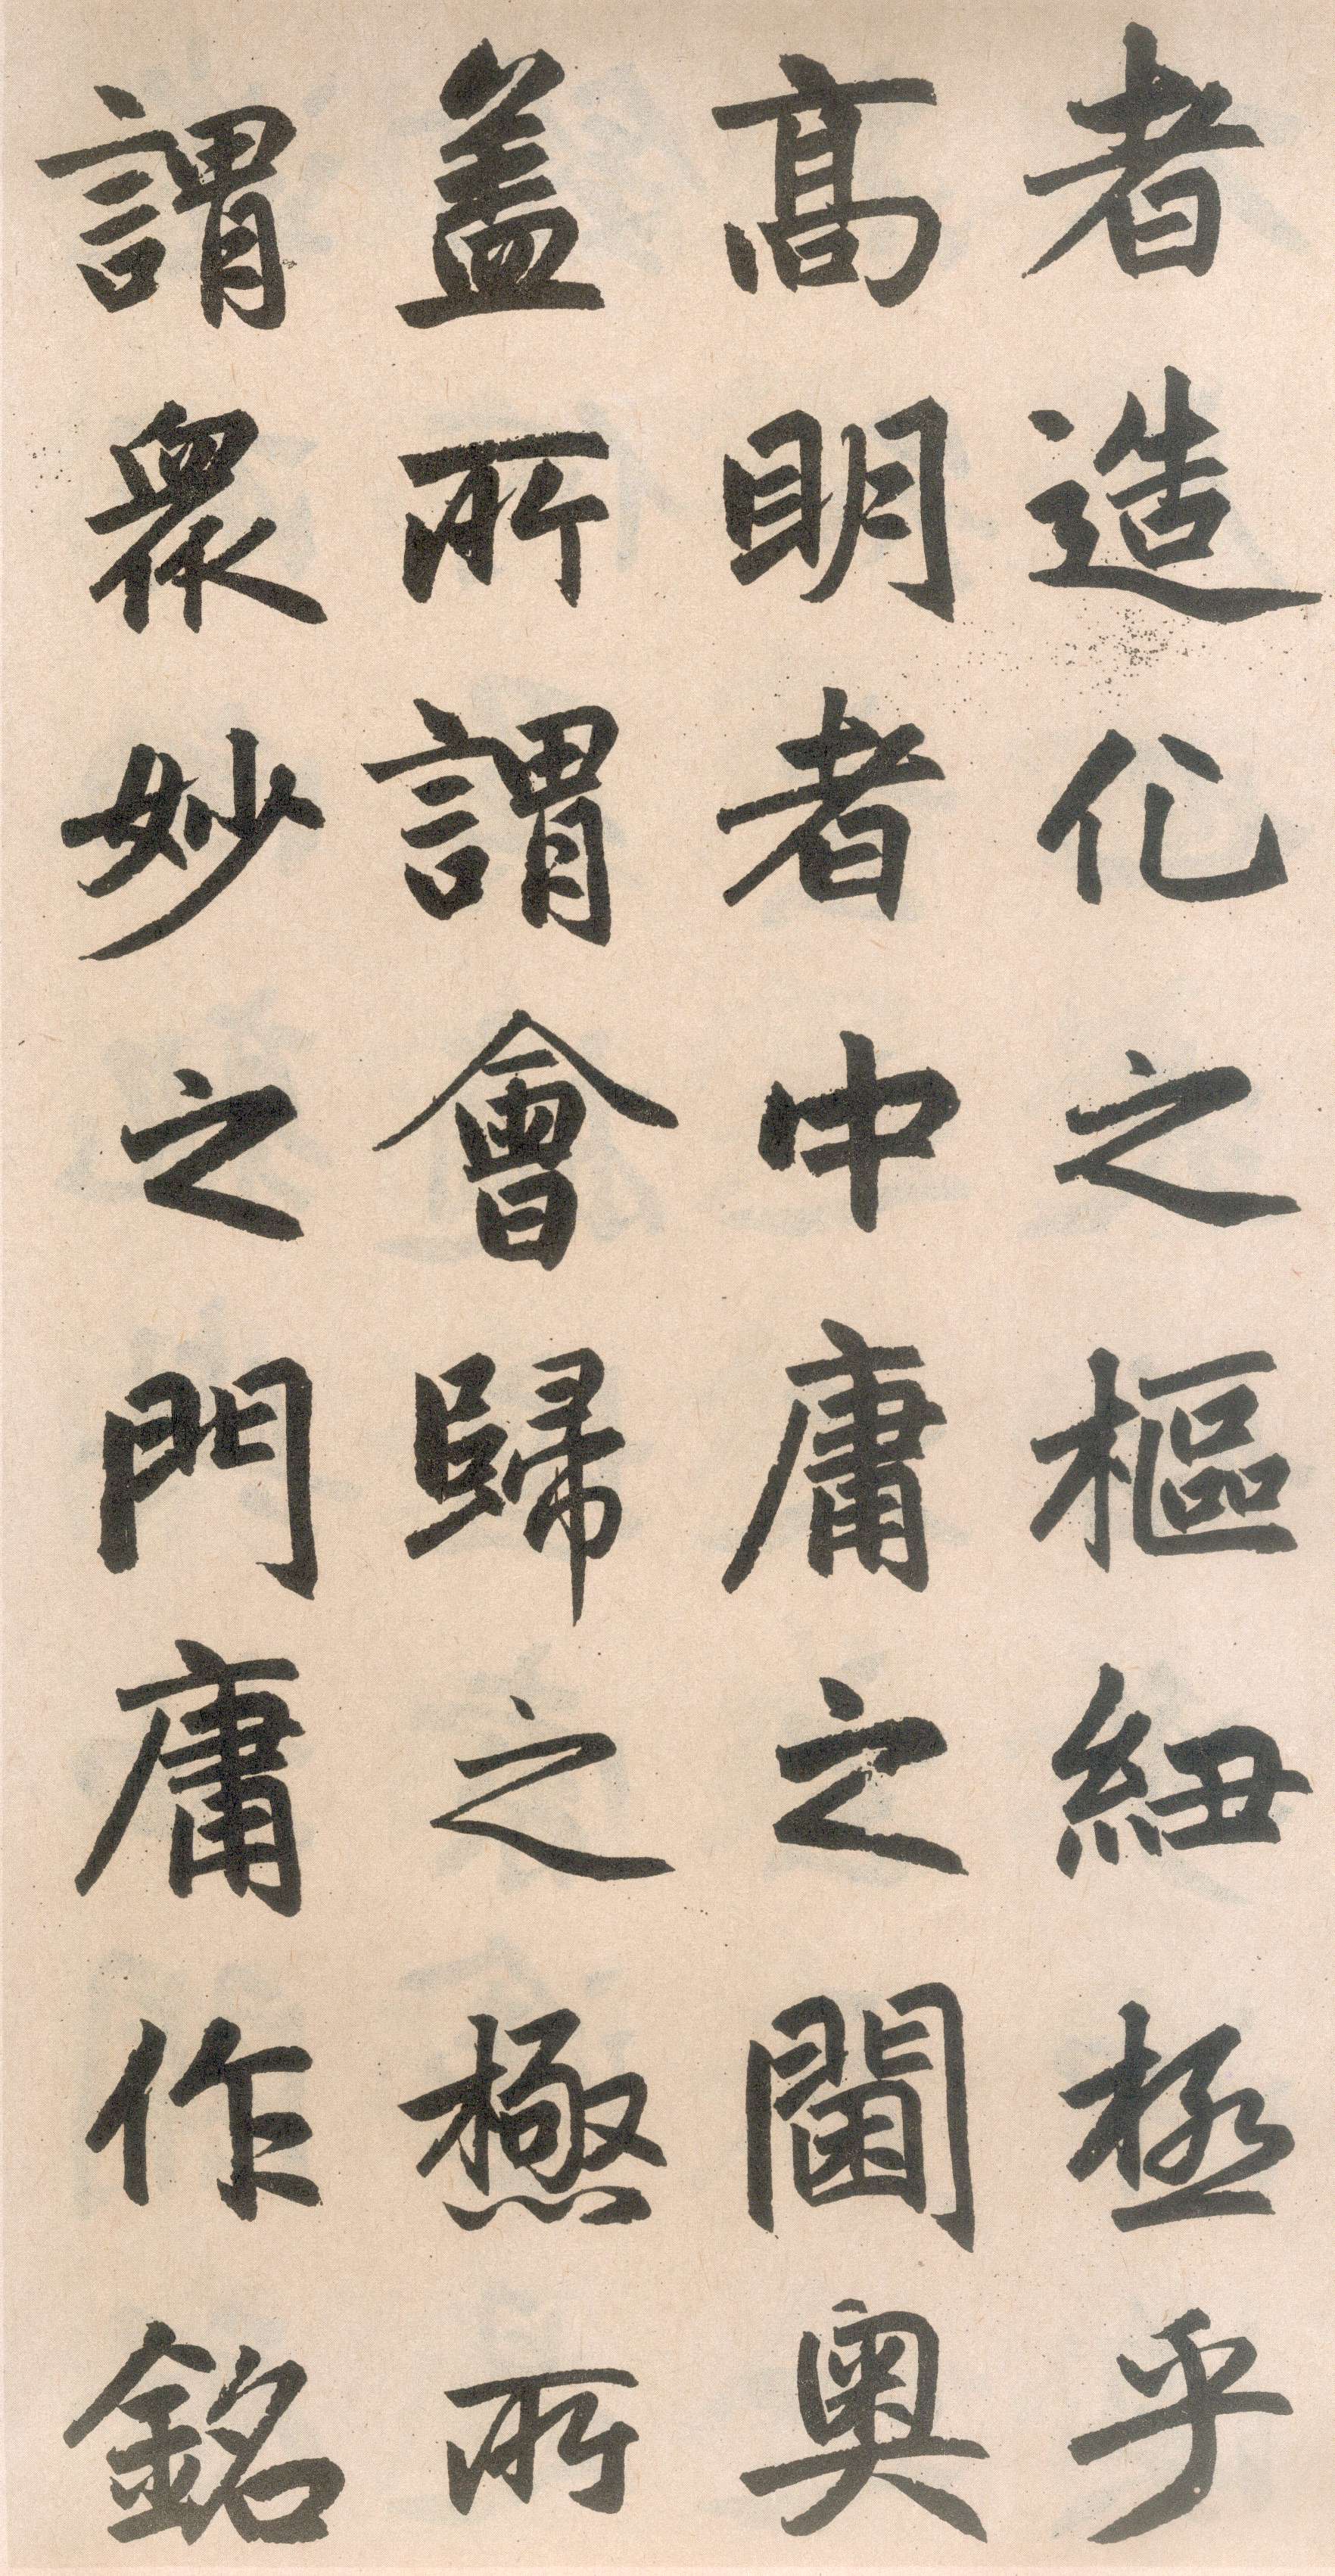 者造化之樞紐極乎
髙明者中庸之閫奧
盖所謂會歸之極所
謂衆妙之門庸作銘